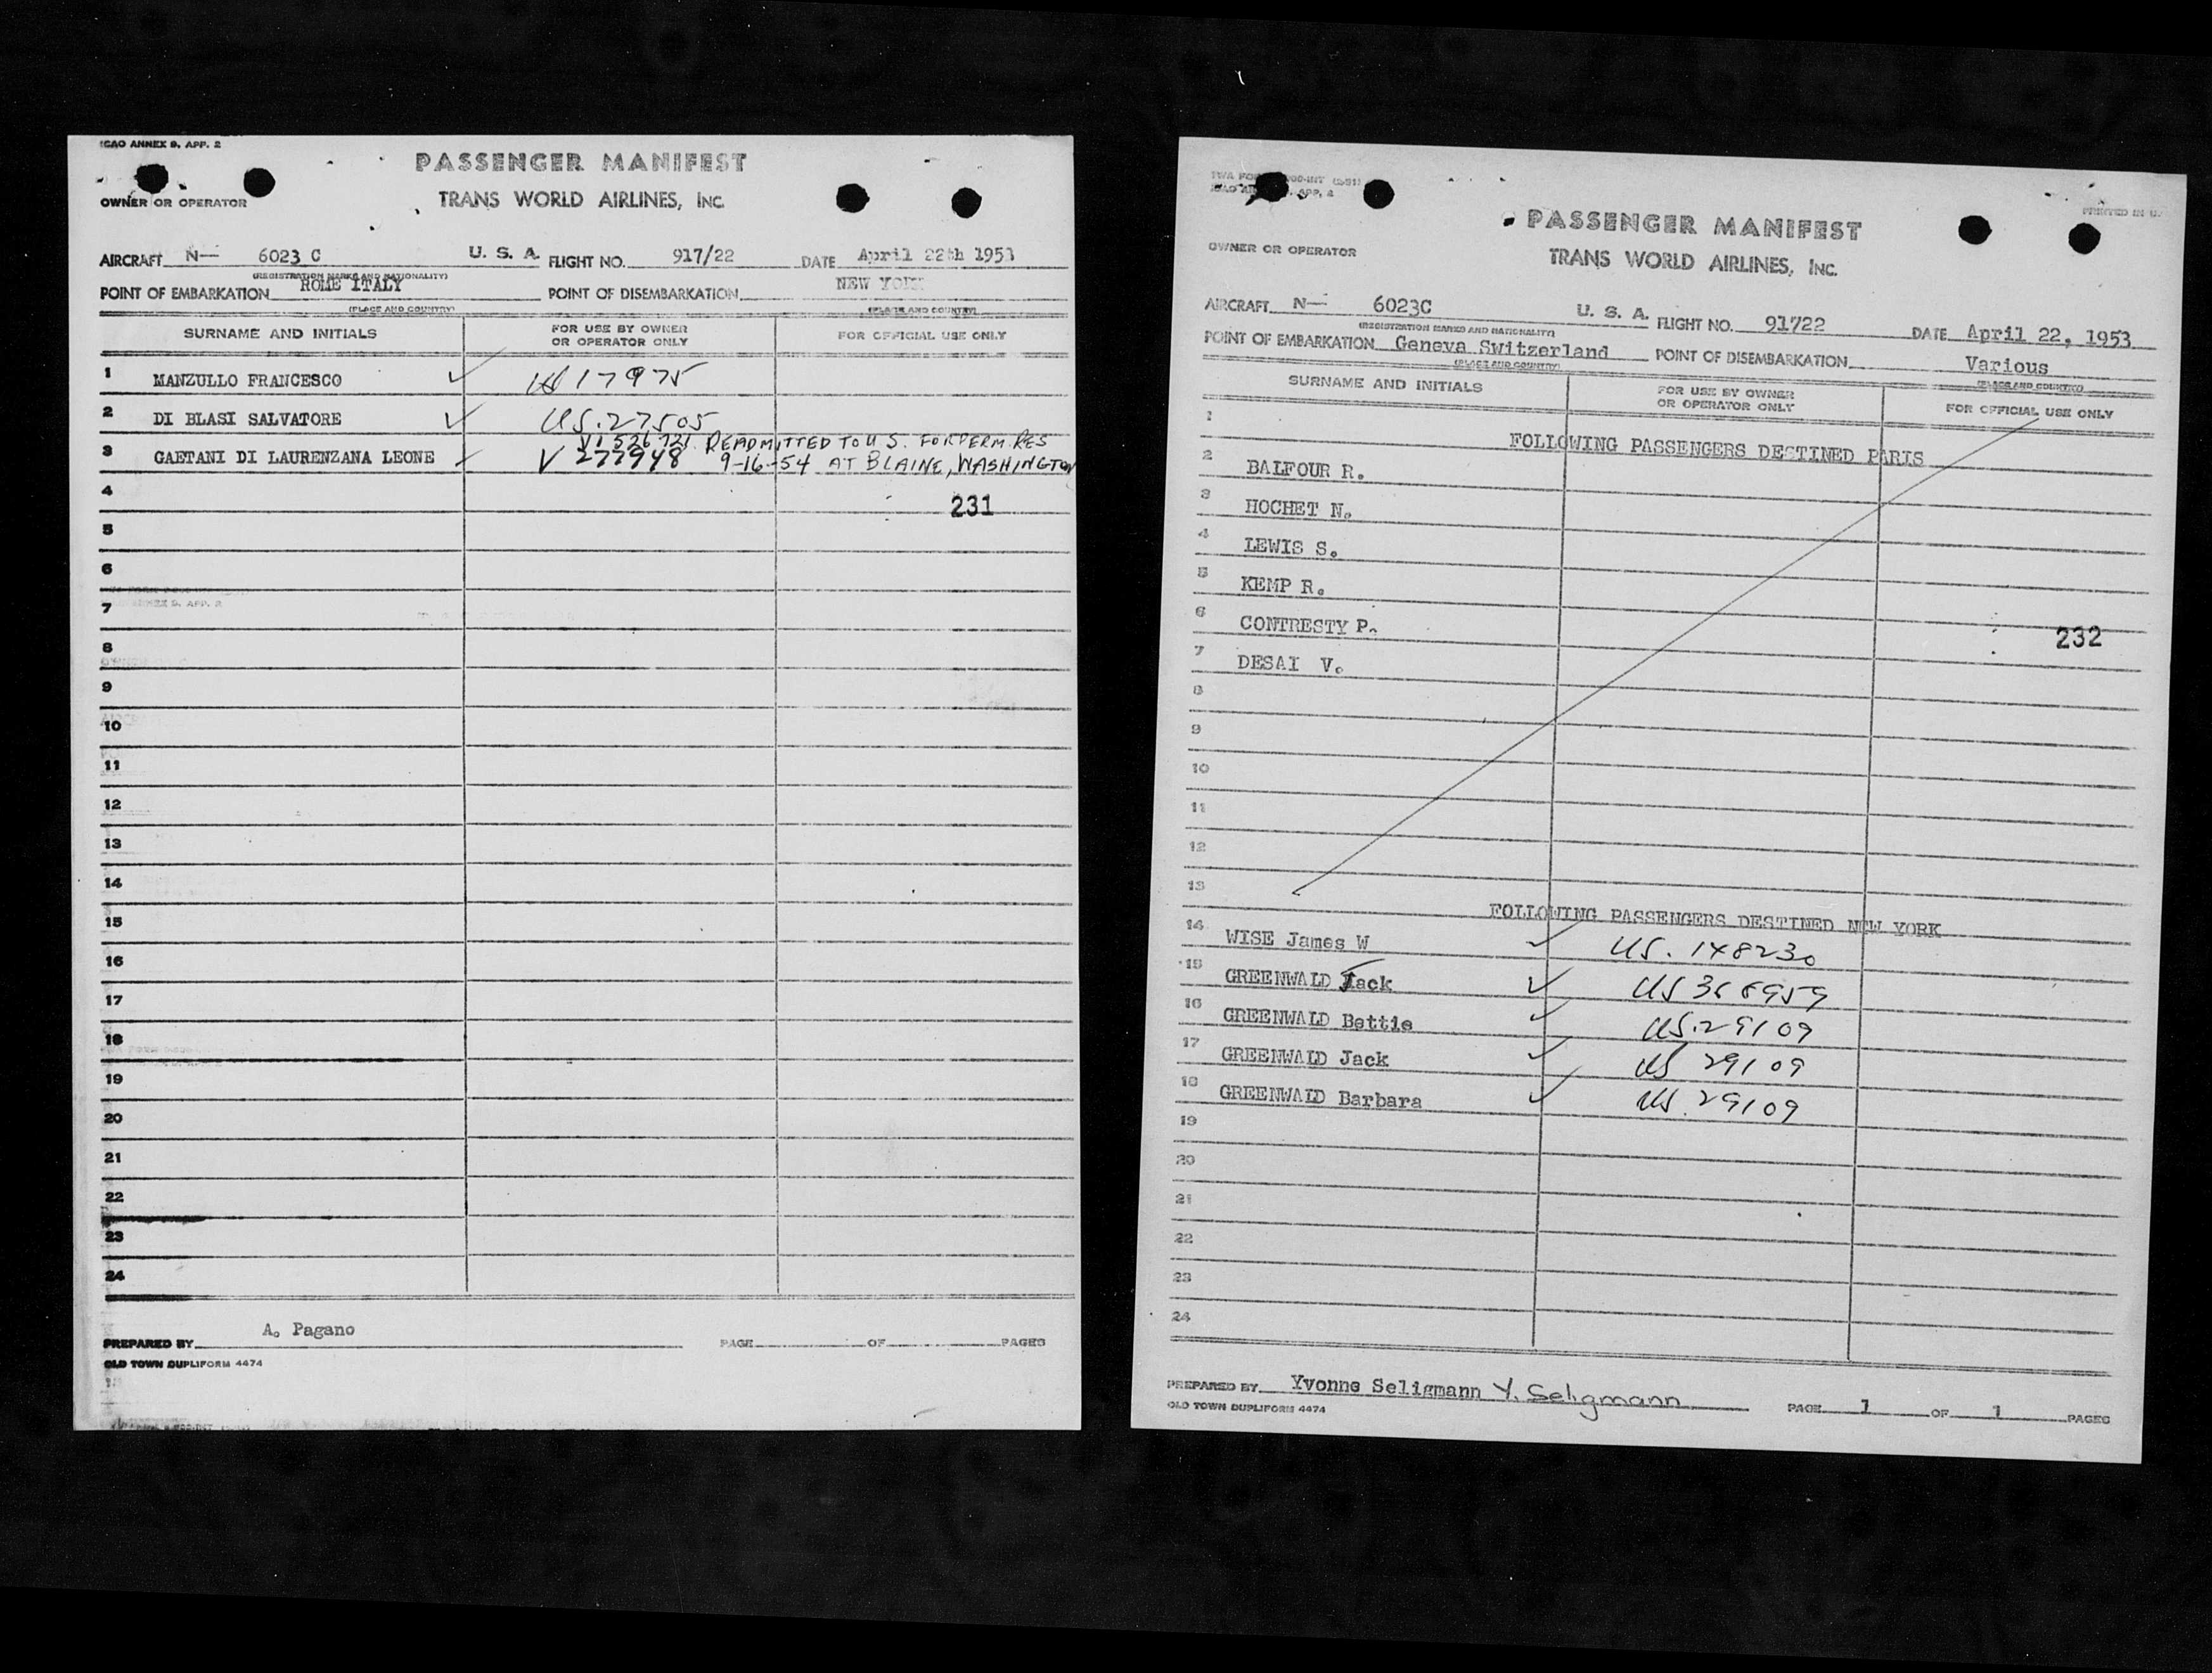 ICAO ANNEX 9, APP. 2
PASSENGER MANIFEST
OWNER OR OPERATOR
TRANS WORLD AIRLINES, INC.
AIRCRAFT N— 6023 C U. S. A. FLIGHT NO. 917/22 DATE April 22th 1953
(REGISTRATION MARKS AND NATIONALITY)
POINT OF EMBARKATION ROME ITALY POINT OF DISEMBARKATION NEW YORK
(PLACE AND COUNTRY) (PLACE AND COUNTRY)
SURNAME AND INITIALS FOR USE BY OWNER OR OPERATOR ONLY FOR OFFICIAL USE ONLY
1 MANZULLO FRANCESCO ✓ 17975
2 DI BLASI SALVATORE ✓ US.27505
V1526721 READMITTED TO U S. FOR PERM. RES
3 GAETANI DI LAURENZANA LEONE ✓ V 277948 9-16-54 AT BLAINE, WASHINGTON
4 231
5
6
7
8
9
10
11
12
13
14
15
16
17
18
19
20
21
22
23
24
PREPARED BY A. Pagano PAGE OF PAGES
OLD TOWN DUPLIFORM 4474
PRINTED IN U.
PASSENGER MANIFEST
OWNER OR OPERATOR
TRANS WORLD AIRLINES, INC.
AIRCRAFT N— 6023C U. S. A. FLIGHT NO. 91722 DATE April 22, 1953
(REGISTRATION MARKS AND NATIONALITY)
POINT OF EMBARKATION Geneva Switzerland POINT OF DISEMBARKATION Various
(PLACE AND COUNTRY) (PLACE AND COUNTRY)
SURNAME AND INITIALS FOR USE BY OWNER OR OPERATOR ONLY FOR OFFICIAL USE ONLY
1 FOLLOWING PASSENGERS DESTINED PARIS
2 BALFOUR R.
3 HOCHET N.
4 LEWIS S.
5 KEMP R.
6 CONTRESTY P. 232
7 DESAI V.
8
9
10
11
12
13 FOLLOWING PASSENGERS DESTINED NEW YORK
14 WISE James W ✓ US. 148230
15 GREENWALD Jack ✓ US 368959
16 GREENWALD Bettie ✓ US.29109
17 GREENWALD Jack ✓ US 29109
18 GREENWALD Barbara ✓ US. 29109
19
20
21
22
23
24
PREPARED BY Yvonne Seligmann Y. Seligmann PAGE 1 OF 1 PAGES
OLD TOWN DUPLIFORM 4474